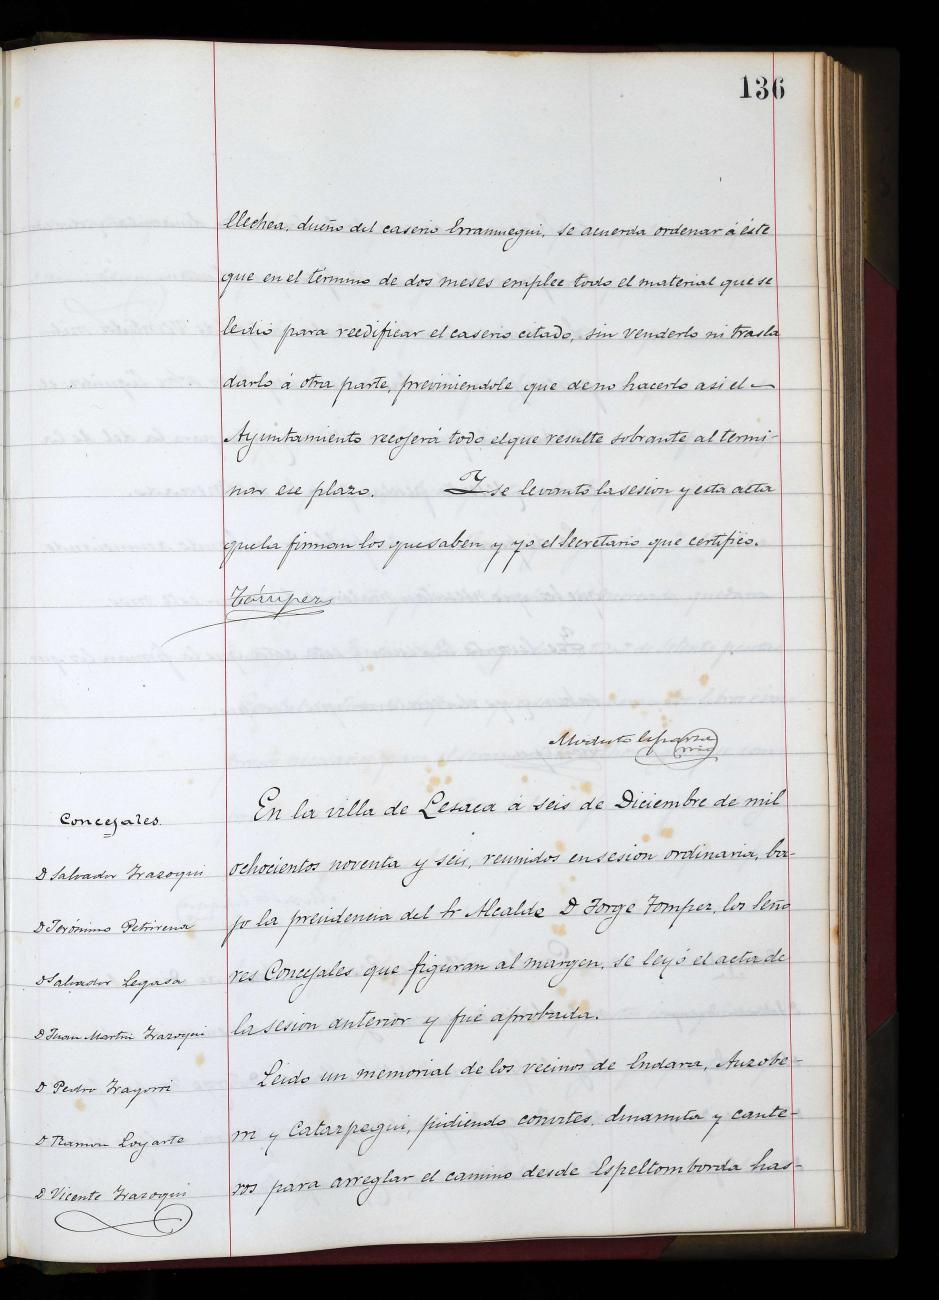 136
llechea, dueño del caserio Errannegui, se acuerda ordenar á éste
que en el término de dos meses emplee todo el material que se
le dió para reedificar el caserio citado, sin venderlo ni trasla
darlo á otra parte, previniendole que de no hacerlo asi el
Ayuntamiento recojerá todo el que resulte sobrante al termi-
nar ese plazo. Y se levantó la sesion y esta acta
que la firman los que saben y yo el Secretario que certifico.
Modesto
En la villa de Lesaca á seis de Diciembre de mil
ochocientos noventa y seis, reunidos en sesion ordinaria, ba-
jo la presidencia del Sr Alcalde D Jorge Tompez, los Seño
res Concejales que figuran al margen, se leyó el acta de
la sesion anterior y fué aprobada.
Leido un memorial de los vecinos de Endara, Auzobe-
rri y Catazpegui, pidiendo convites, dinamita y cante-
ros para arreglar el camino desde Espeltomborda has-
Concejales
D Salvador Irazoqui
D Jerónimo Petrirena
D Salvador Legasa
D Juan Martin Irazoqui
D Pedro Irazoqui
D Ramon Loyarte
D Vicente Irazoqui